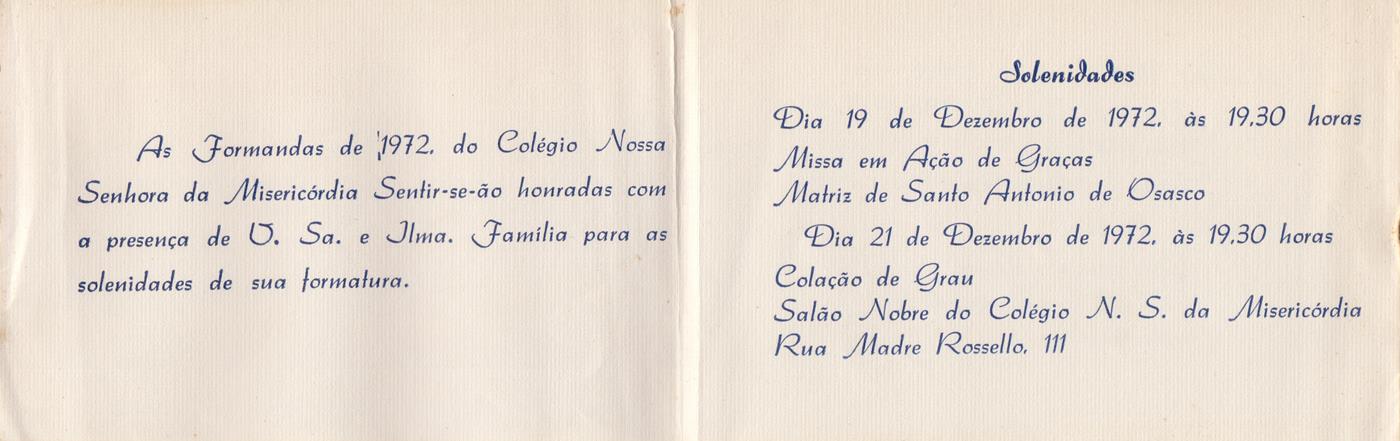 As Formandas de 1972, do Colégio Nossa
Senhora da Misericórdia Sentir-se-ão honradas com
a presença de V. Sa. e Ilma. Família para as
solenidades de sua formatura.
Solenidades
Dia 19 de Dezembro de 1972, às 19,30 horas
Missa em Ação de Graças
Matriz de Santo Antonio de Osasco
Dia 21 de Dezembro de 1972, às 19,30 horas
Colação de Grau
Salão Nobre do Colégio N. S. da Misericórdia
Rua Madre Rossello, 111